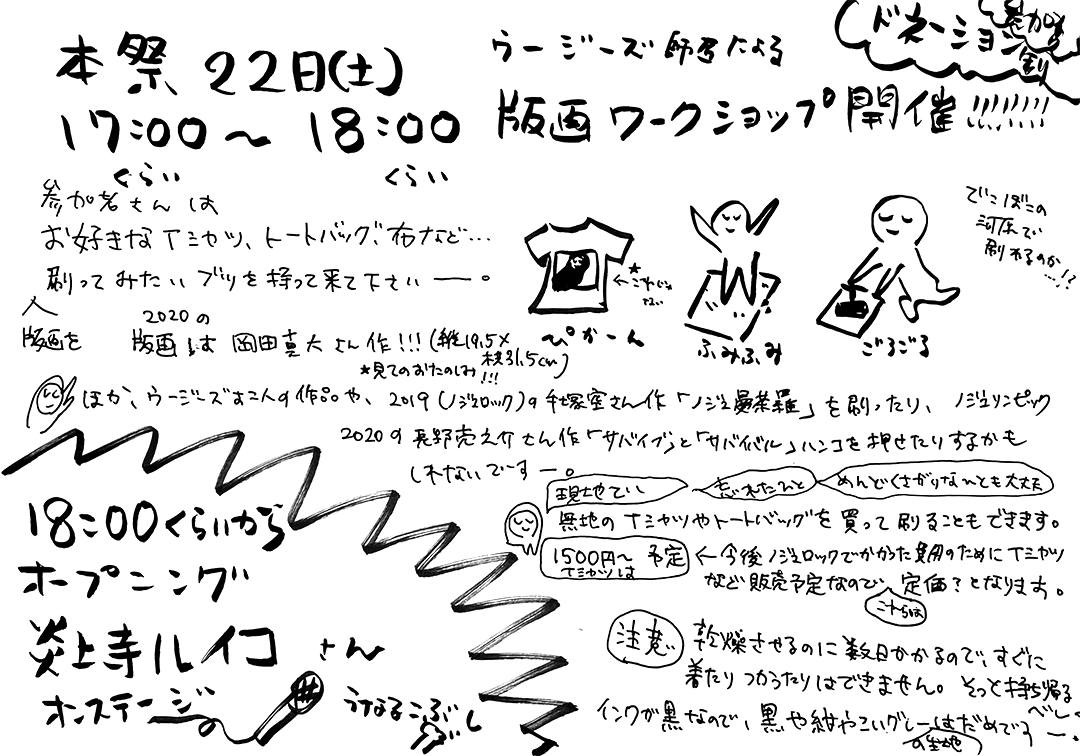 本祭 22日(土)
17:00〜18:00
くらい くらい
ウージーズ師匠による
版画ワークショップ開催!!!!!!!!
ドネーション
参加者さんは
お好きなTシャツ、トートバッグ、布など…
刷ってみたいブツを持って来て下さいー。
版画を
2020の
版画は 岡田真太さん作!!!(縦19.5×
横31.5cm)
*見てのおたのしみ!!!
★
←これじゃない
ぴかーん
ふみふみ
ごろごろ
でこぼこの
河原で
刷れるのか…!?
ほか、ウージーズお二人の作品や、2019(ノジュロック)の手塚室さん作「ノジュ曼荼羅」を刷ったり、ノジュリンピック
2020の長野亮之介さん作「サバイブ」と「サバイバル」ハンコを押せたりするかも
しれないでーすー。
現地でい 忘れたひと めんどくさがりなひとも大丈夫
無地のTシャツやトートバッグを買って刷ることもできます。
1500円〜予定
Tシャツは
←今後ノジュロックでかかった費用のためにTシャツ
など販売予定なので、定価?となります。
こちらは
注意 乾燥させるのに数日かかるので、すぐに
着たりつかったりはできません。そっと持ち帰る
べしー。
インクが黒なので、黒や紺やこいグレーはだめですー。
の生地
18:00くらいから
オープニング
炎上寺ルイコさん
オンステージ
うなるこぶし